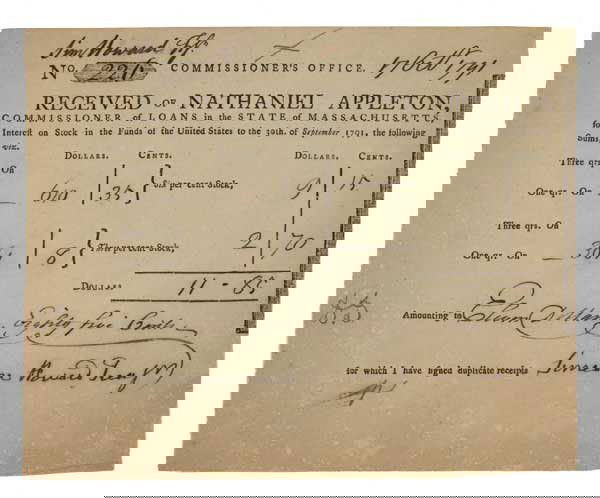 Simn Howard
No. 2216 COMMISSIONER'S OFFICE. 17 Octr. 1791
RECEIVED OF NATHANIEL APPLETON,
COMMISSIONER of LOANS in the STATE of MASSACHUSETTS,
for Interest on Stock in the Funds of the United States to the 30th. of September 1791, the following
Sums, viz.
DOLLARS. CENTS. DOLLARS. CENTS.
Three qrs. On
One qr. On 610 35 Six per cent Stock, 9 15
Three qrs. On
One qr. On Three per cent Stock, 2 70
DOLLARS 11 - 85
Amounting to Eleven
Dollars Eighty five Cents
for which I have signed duplicate receipts Simeon
Howard